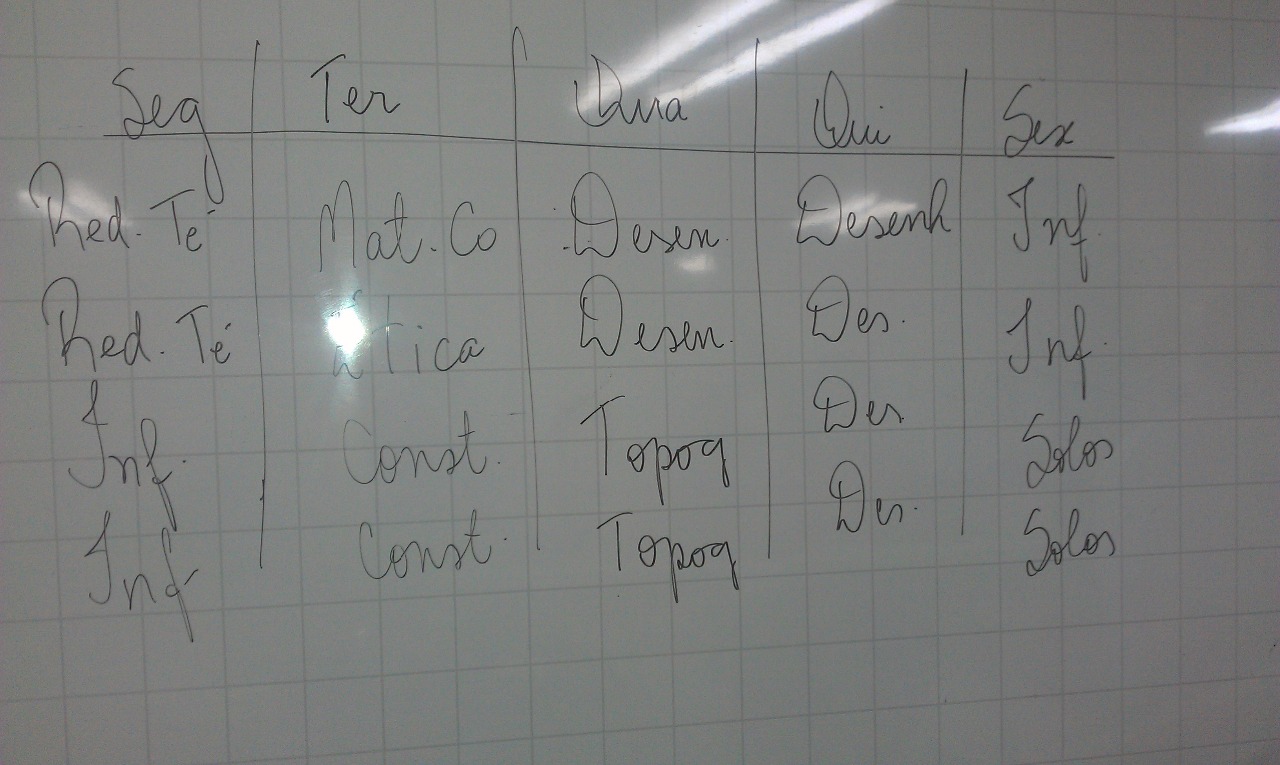 Seg Ter Qua Qui Sex
Red. Té Mat. Co Desen. Desenh Inf.
Red. Té Desen. Des. Inf.
Inf. Const. Topog Des Solos
Inf Const. Topog Des. Solos